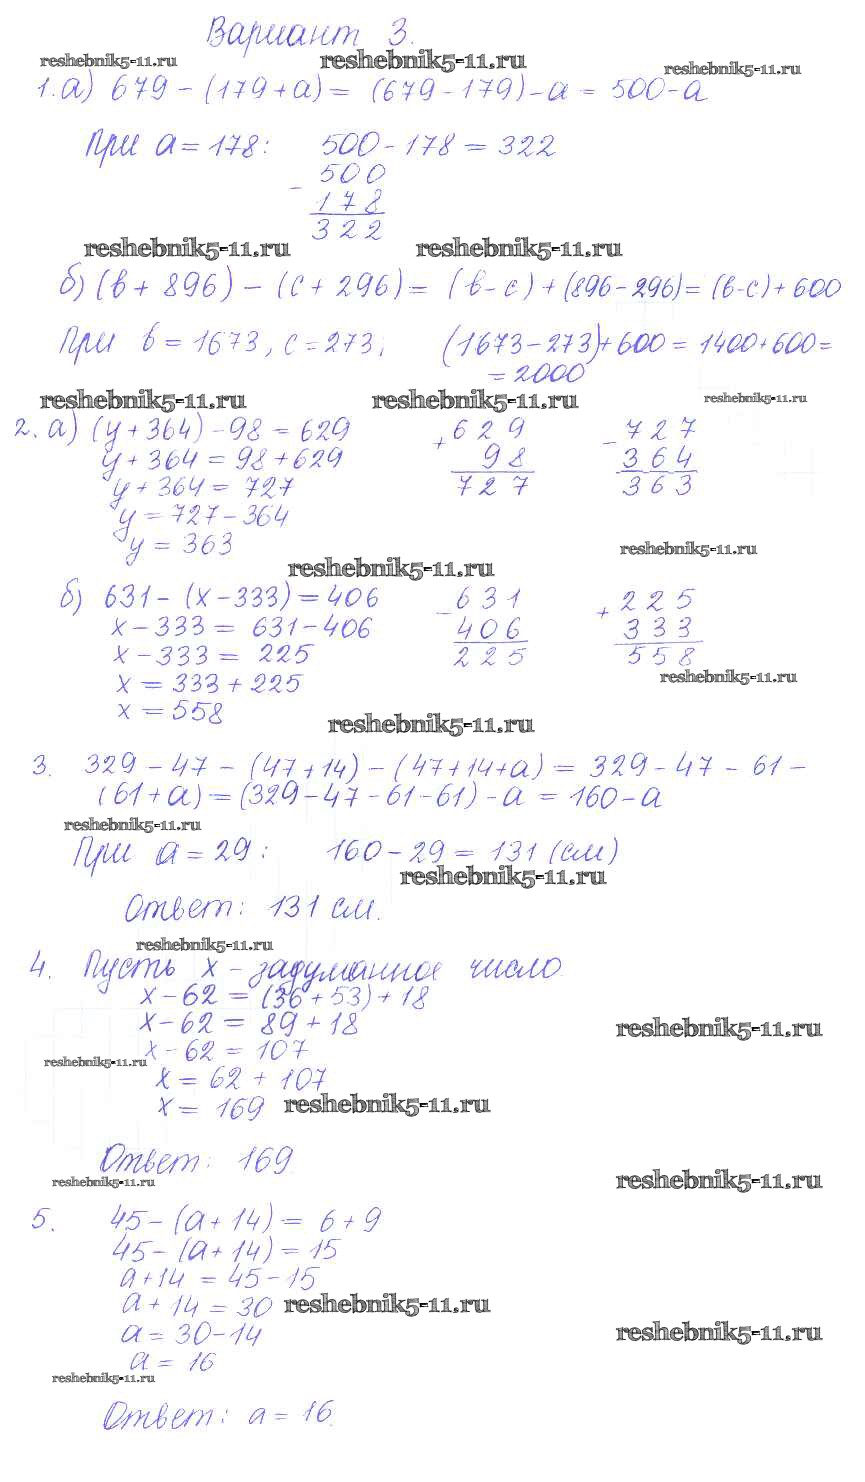 Вариант 3.
reshebnik5-11.ru reshebnik5-11.ru reshebnik5-11.ru
1. а) 679 - (179 + а) = (679 - 179) - а = 500 - а
При а = 178: 500 - 178 = 322
- 500
178
322
reshebnik5-11.ru reshebnik5-11.ru
б) (в + 896) - (с + 296) = (в - с) + (896 - 296) = (в - с) + 600
При в = 1673, с = 273; (1673 - 273) + 600 = 1400 + 600 =
= 2000
reshebnik5-11.ru reshebnik5-11.ru reshebnik5-11.ru
2. а) (у + 364) - 98 = 629 + 629 - 727
у + 364 = 98 + 629 98 364
у + 364 = 727 727 363
у = 727 - 364
у = 363
reshebnik5-11.ru
reshebnik5-11.ru
б) 631 - (х - 333) = 406 - 631 + 225
х - 333 = 631 - 406 406 333
х - 333 = 225 225 558
х = 333 + 225 reshebnik5-11.ru
х = 558
reshebnik5-11.ru
3. 329 - 47 - (47 + 14) - (47 + 14 + а) = 329 - 47 - 61 -
(61 + а) = (329 - 47 - 61 - 61) - а = 160 - а
reshebnik5-11.ru
При а = 29: 160 - 29 = 131 (см)
reshebnik5-11.ru
Ответ: 131 см.
reshebnik5-11.ru
4. Пусть х - задуманное число.
х - 62 = (36 + 53) + 18
х - 62 = 89 + 18 reshebnik5-11.ru
х - 62 = 107
reshebnik5-11.ru
х = 62 + 107
х = 169 reshebnik5-11.ru
Ответ: 169.
reshebnik5-11.ru reshebnik5-11.ru
5. 45 - (а + 14) = 6 + 9
45 - (а + 14) = 15
а + 14 = 45 - 15
а + 14 = 30 reshebnik5-11.ru
а = 30 - 14 reshebnik5-11.ru
а = 16
reshebnik5-11.ru
Ответ: а = 16.